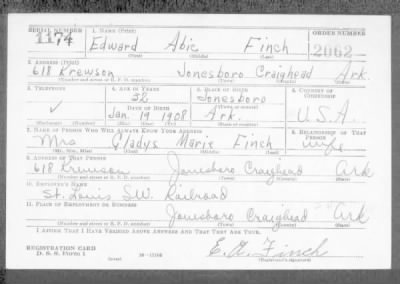 SERIAL NUMBER 1. NAME (Print) ORDER NUMBER
1174 Edward Abie Finch 2062
(First) (Middle) (Last)
2. ADDRESS (Print)
618 Krewson Jonesboro Craighead Ark.
(Number and street or R. F. D. number) (Town) (County) (State)
3. TELEPHONE 4. AGE IN YEARS 5. PLACE OF BIRTH 6. COUNTRY OF CITIZENSHIP
32 Jonesboro
DATE OF BIRTH
✓ Jan. 19 1908 Ark. U.S.A.
(Exchange) (Number) (Mo.) (Day) (Yr.) (State or country)
7. NAME OF PERSON WHO WILL ALWAYS KNOW YOUR ADDRESS 8. RELATIONSHIP OF THAT PERSON
Mrs Gladys Marie Finch wife
(Mr., Mrs., Miss) (First) (Middle) (Last)
9. ADDRESS OF THAT PERSON
618 Krewson Jonesboro Craighead Ark
(Number and street or R. F. D. number) (Town) (County) (State)
10. EMPLOYER'S NAME
St. Louis S.W. Railroad
11. PLACE OF EMPLOYMENT OR BUSINESS
Jonesboro Craighead Ark
(Number and street or R. F. D. number) (Town) (County) (State)
I AFFIRM THAT I HAVE VERIFIED ABOVE ANSWERS AND THAT THEY ARE TRUE.
REGISTRATION CARD E. A. Finch
D. S. S. Form 1 (over) (Registrant's signature)